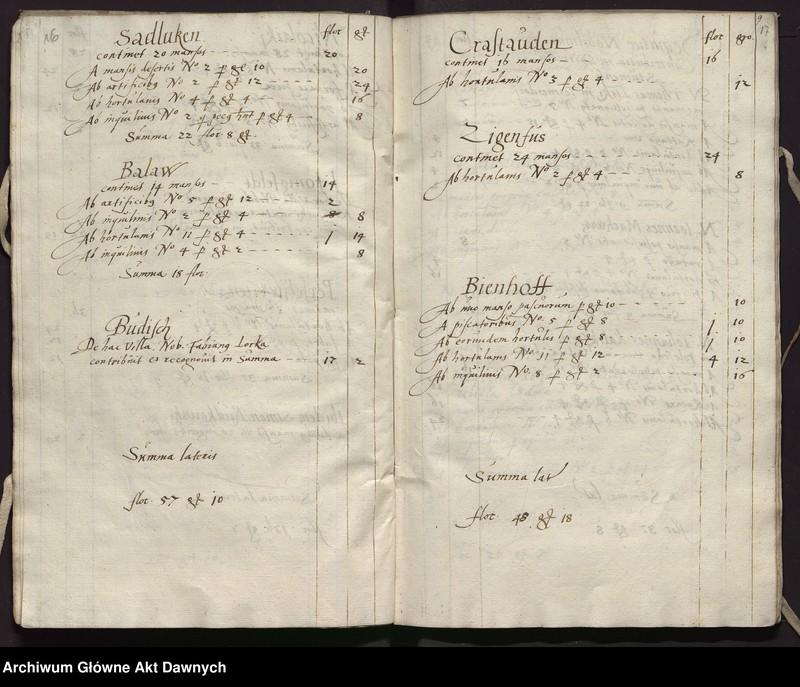 16
flor gr
Sadluken
continet 20 mansos - - - 20
A mansis desertis No 2 p gr 10 20
Ab artificibus No 2 p gr 12 - - - 24
Ab hortulanis No 4 p gr 4 - 16
Ab inquilinis No 2 p gr 4 - - 8
Summa 22 flor 8 gr.
Balaw
continet 14 mansos - 14
Ab artificibus No 5 p gr 12 - - - 2
Ab inquilinis No 2 p gr 4 - - 8
Ab hortulanis No 11 p gr 4 - 1 14
Ab inquilinis No 4 p gr 2 - - - - - 8
Summa 18 flor
Budisch
De hac villa Nob. Fabiang Lorka
contribuit et recognovit in Summa - 17 2
Summa lateris
flor. 57 gr 10
17
flor gro.
Crastauden
continet 16 mansos - 16
Ab hortulanis No 3 p gr 4 12
Zigenfus
continet 24 mansos - - - 24
Ab hortulanis No 2 p gr 4 - - 8
Bienhoff
Ab uno manso pascuorum p gr 10 - - - - 10
A piscatoribus No. 5 p gr 8 1. 10
Ab eorundem hortulis p gr 8 - 1. 10
Ab hortulanis No 11 p gr 12 4 12
Ab inquilinis No. 8 p gr 2 16
Summa lat
flor. 48 gr 18
Archiwum Główne Akt Dawnych